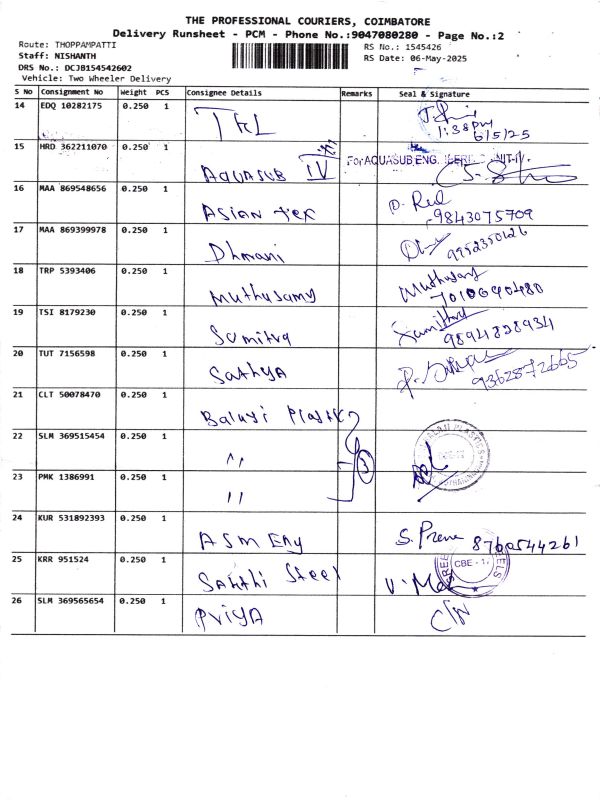 THE PROFESSIONAL COURIERS, COIMBATORE
Delivery Runsheet - PCM - Phone No.:9047080280 - Page No.:2
Route: THOPPAMPATTI
RS No.: 1545426
Staff: NISHANTH
RS Date: 06-May-2025
DRS No.: DCJB154542602
Vehicle: Two Wheeler Delivery
S No Consignment No Weight PCS Consignee Details Remarks Seal & Signature
14 EDQ 10282175 0.250 1
1:38pm
6/5/25
15 HRD 362211070 0.250 1 AQUASUB IV
For AQUASUB ENG.
16 MAA 869548656 0.250 1 Asian Tex
9843075709
17 MAA 869399978 0.250 1 Dhmani
18 TRP 5393406 0.250 1 Muthusamy Muthusamy
19 TSI 8179230 0.250 1 Sumitra
9894828934
20 TUT 7156598 0.250 1 Sathya
9362872665
21 CLT 50078470 0.250 1 Balaji Plastic
22 SLM 369515454 0.250 1 "
23 PMK 1386991 0.250 1 "
24 KUR 531892393 0.250 1 ASM Eng
8760544261
25 KRR 951524 0.250 1 Sakthi Steel
CBE - 17
26 SLM 369565654 0.250 1 Priya